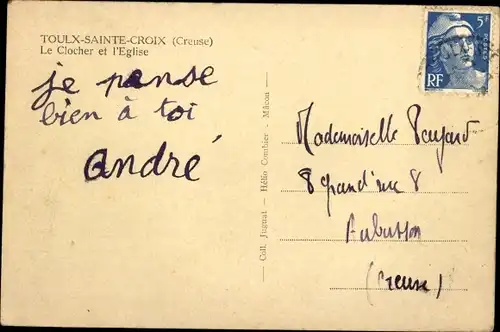 TOULX-SAINTE-CROIX (Creuse)
Le Clocher et l'Eglise
je pense
bien à toi
André
Coll. Jagnat — Hélio Combier - Mâcon
5F
POSTES
RF
Mademoiselle
8 grand'rue 8
Aubusson
(Creuse)